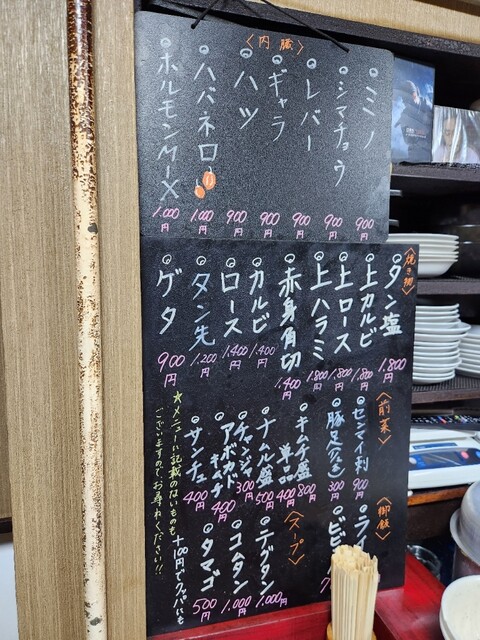 〈内臓〉
ミノ 900円
シマチョウ 900円
レバー 900円
ギャラ 900円
ハツ 900円
ハバネロ 1,000円
ホルモンケーX 1,000円
〈焼き物〉
タン塩 1,800円
上カルビ 1,800円
上ロース 1,800円
上ハラミ 1,800円
赤身角切 1,400円
カルビ 1,400円
ロース 1,400円
タン先 1,200円
ゲタ 900円
〈前菜〉
センマイ刺 900円
豚足 300円
キムチ盛 800円
単品 400円
ナムル盛 500円
チャンジャ 300円
アボカドキムチ 400円
サンチュ 400円
〈御飯〉
ラ
ビビ
〈スープ〉
テグタン 1,000円
コムタン 1,000円
タマゴ 500円
☆メニューに記載のないものも
ございますのでお尋ねください!!
+100円でクッパにも